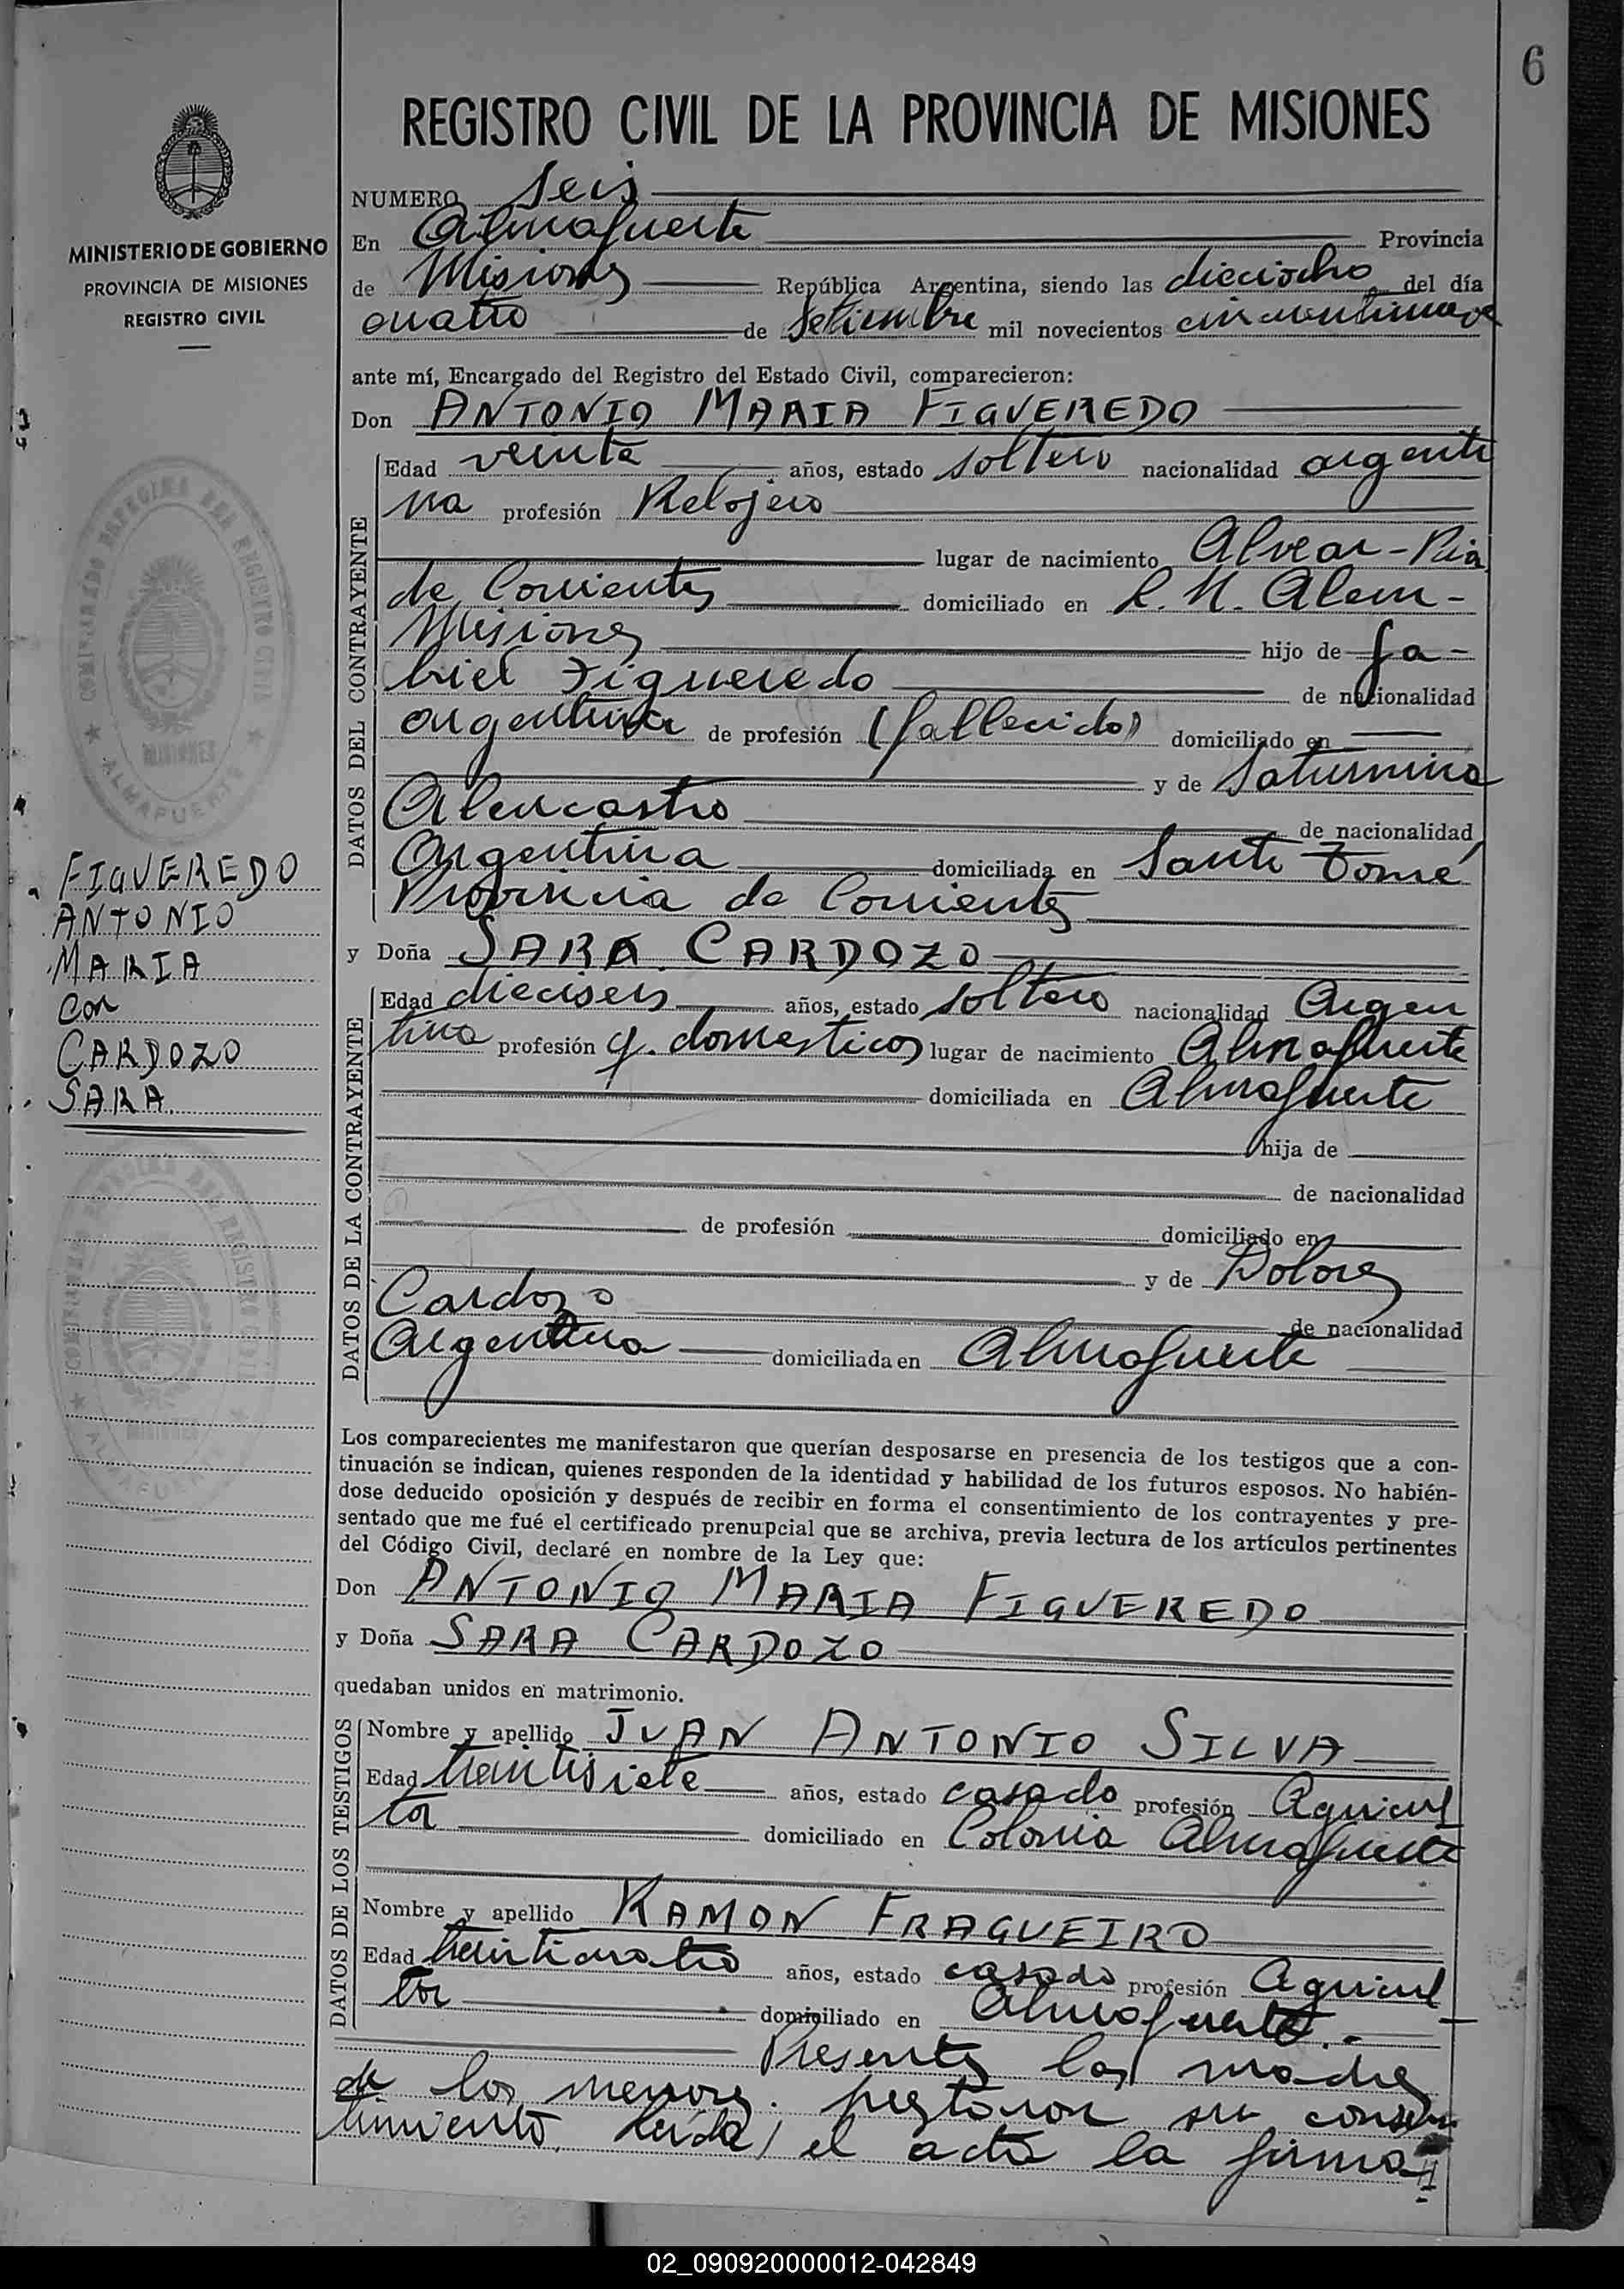 6
REGISTRO CIVIL DE LA PROVINCIA DE MISIONES
MINISTERIO DE GOBIERNO
PROVINCIA DE MISIONES
REGISTRO CIVIL
NUMERO Seis
En Almafuerte Provincia
de Misiones República Argentina, siendo las dieciocho del día
cuatro de Setiembre mil novecientos cincuentinueve
ante mí, Encargado del Registro del Estado Civil, comparecieron:
Don ANTONIO MARIA FIGUEREDO
DATOS DEL CONTRAYENTE
Edad veinte años, estado soltero nacionalidad argenti
na profesión Relojero
lugar de nacimiento Alvear - Pcia
de Corrientes domiciliado en L. N. Alem -
Misiones hijo de Ga-
briel Figueredo de nacionalidad
argentina de profesión (fallecido) domiciliado en
y de Saturnina
Alencastro de nacionalidad
Argentina domiciliada en Santo Tomé
Provincia de Corrientes
FIGUEREDO
ANTONIO
MARIA
con
CARDOZO
SARA.
y Doña SARA CARDOZO
DATOS DE LA CONTRAYENTE
Edad dieciseis años, estado soltero nacionalidad Argen
tina profesión q. domesticos lugar de nacimiento Almafuerte
domiciliada en Almafuerte
hija de
de nacionalidad
de profesión domiciliado en
y de Dolores
Cardozo de nacionalidad
Argentina domiciliada en Almafuerte
Los comparecientes me manifestaron que querían desposarse en presencia de los testigos que a con-
tinuación se indican, quienes responden de la identidad y habilidad de los futuros esposos. No habién-
dose deducido oposición y después de recibir en forma el consentimiento de los contrayentes y pre-
sentado que me fué el certificado prenupcial que se archiva, previa lectura de los artículos pertinentes
del Código Civil, declaré en nombre de la Ley que:
Don ANTONIO MARIA FIGUEREDO
y Doña SARA CARDOZO
quedaban unidos en matrimonio.
DATOS DE LOS TESTIGOS
Nombre y apellido JUAN ANTONIO SILVA
Edad treintisiete años, estado casado profesión Agricul
tor domiciliado en Colonia Almafuerte
Nombre y apellido RAMON FRAGUEIRO
Edad treinticuatro años, estado casado profesión Agricul
tor domiciliado en Almafuerte.-
Presentes las madres
de los menores. prestaron su consen
timiento. Leida el acta la firma
02_090920000012-042849